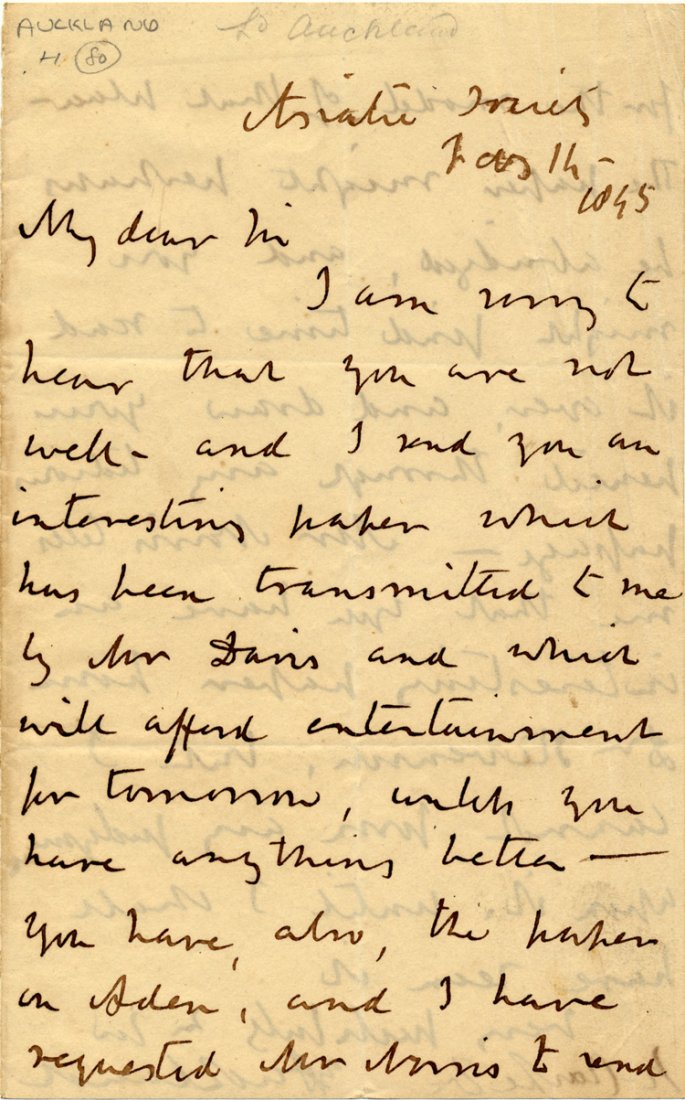 AUCKLAND
H 80
Ld Auckland
Asiatic Society
14
1845
My dear Sir
I am sorry to
hear that you are not
well - and I send you an
interesting paper which
has been transmitted to me
by Mr Davis and which
will afford entertainment
for tomorrow, unless you
have anything better —
you have, also, the paper
on Aden, and I have
requested Mr Norris to send